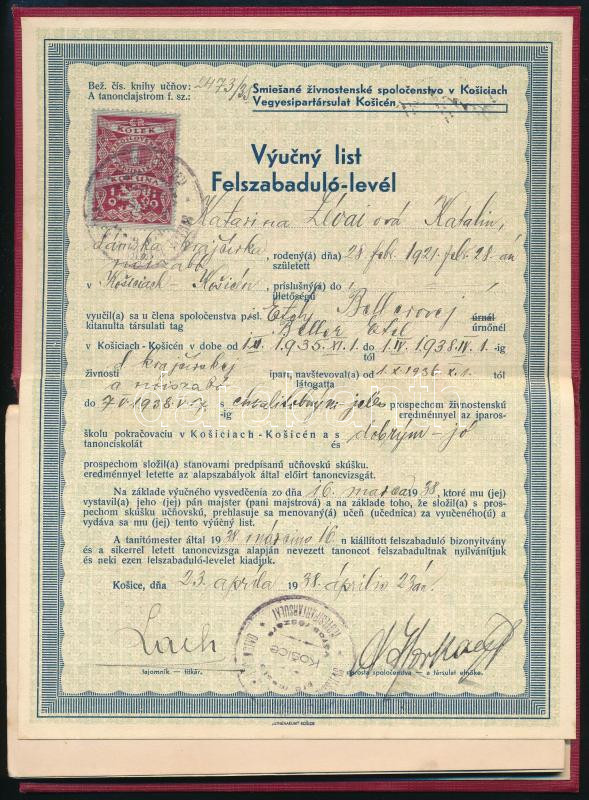 Bež. čís. knihy učňov: 2473/35
A tanonclajstrom f. sz.:
Smiešané živnostenské spoločenstvo v Košiciach
Vegyesipartársulat Košicén
KOLEK
1
KORUNA
Výučný list
Felszabaduló-levél
Katarina Lévai ová Katalin,
dámska krajčírka , rodený(á) dňa) 28 feb. 1921. feb. 28-án
női szabó született
v Košiciach - Košicén , príslušný(á) do
illetőségű
vyučil(a) sa u člena spoločenstva p. sl. Etely Bellerovej úrnál
kitanulta társulati tag Beller Etel úrnőnél
v Košiciach-Košicén v dobe od 1.XI. 1935. XI. 1 do 1. IV. 1938. IV. 1. -ig
tól
živnosti krajčírskej ipart, navštevoval(a) od 1.X. 1936. X. 1. tól
a női szabó látogatta
do 7.V. 1938. V. 7. s chvalitebným - jeles prospechom živnostenskú
-ig eredménnyel az iparos-
školu pokračovaciu v Košiciach-Košicén a s dobrým - jó
tanonciskolát és
prospechom složil(a) stanovami predpísanú učňovskú skúšku.
eredménnyel letette az alapszabályok által előírt tanoncvizsgát.
Na základe výučného vysvedčenia zo dňa 16. marca 1938, ktoré mu (jej)
vystavil(a) jeho (jej) pán majster (pani majstrová) a na základe toho, že složil(a) s pros-
pechom skúšku učňovskú, prehlasuje sa menovaný(á) učeň (učednica) za vyučeného(ú) a
vydáva sa mu (jej) tento výučný list.
A tanítómester által 1938 március 16. n kiállított felszabaduló bizonyítvány
és a sikerrel letett tanoncvizsga alapján nevezett tanoncot felszabadultnak nyilvánítjuk
és neki ezen felszabaduló-levelet kiadjuk.
Košice, dňa 23. apríla 1938. április 23 án.
Košice
Lach
tajomník — titkár.
starosta spoločenstva — a társulat elnöke.
„ATHENAEUM" KOŠICE
darabanth